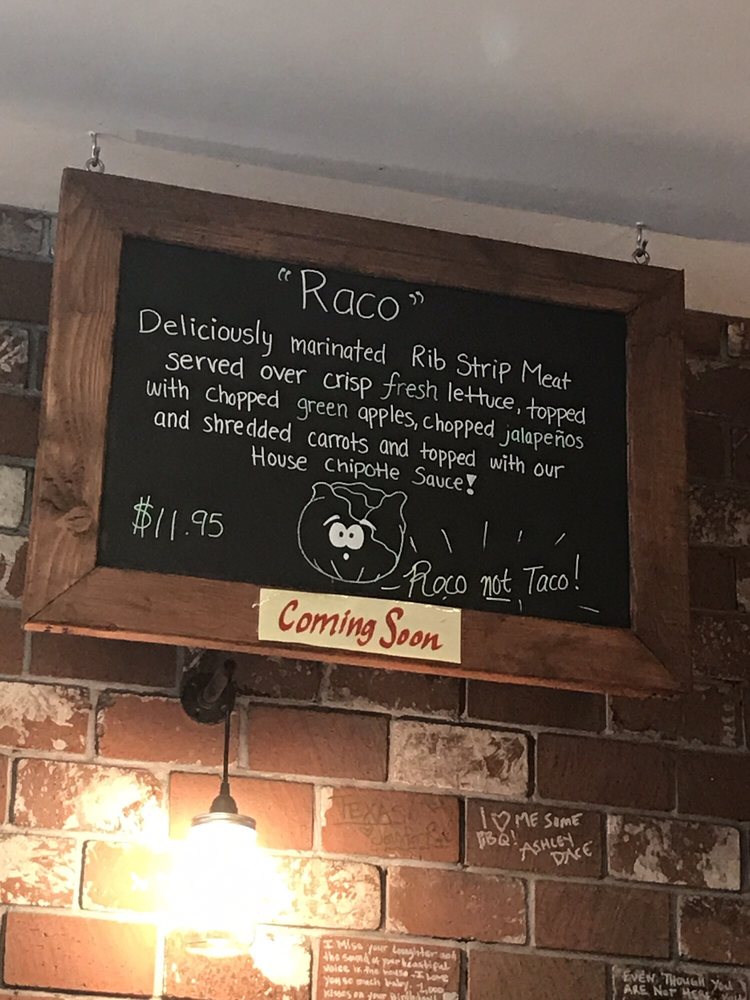 "Raco"
Deliciously marinated Rib Strip Meat
served over crisp fresh lettuce, topped
with chopped green apples, chopped jalapeños
and shredded carrots and topped with our
House Chipotle Sauce!
$11.95
Raco not Taco!
Coming Soon
TEXAS
I ♡ ME SOME
BBQ!
ASHLEY
DACE
I Miss your Laughter and
the sound of your beautiful
voice in the house. I Love
you so much baby. Love
kisses on your
EVEN THOUGH YOU
ARE NOT